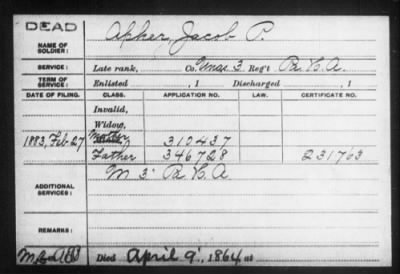 DEAD
NAME OF SOLDIER: Apker, Jacob P.
SERVICE: Late rank, Co. 3 Reg't Pa. C. A.
TERM OF SERVICE: Enlisted , 1 Discharged , 1
DATE OF FILING. CLASS. APPLICATION NO. LAW. CERTIFICATE NO.
Invalid,
Widow,
1883, Feb 27 Mother 310437
Father 346728 231763
ADDITIONAL SERVICES: M 3' Pa C A
REMARKS:
Died April 9', 1864, at